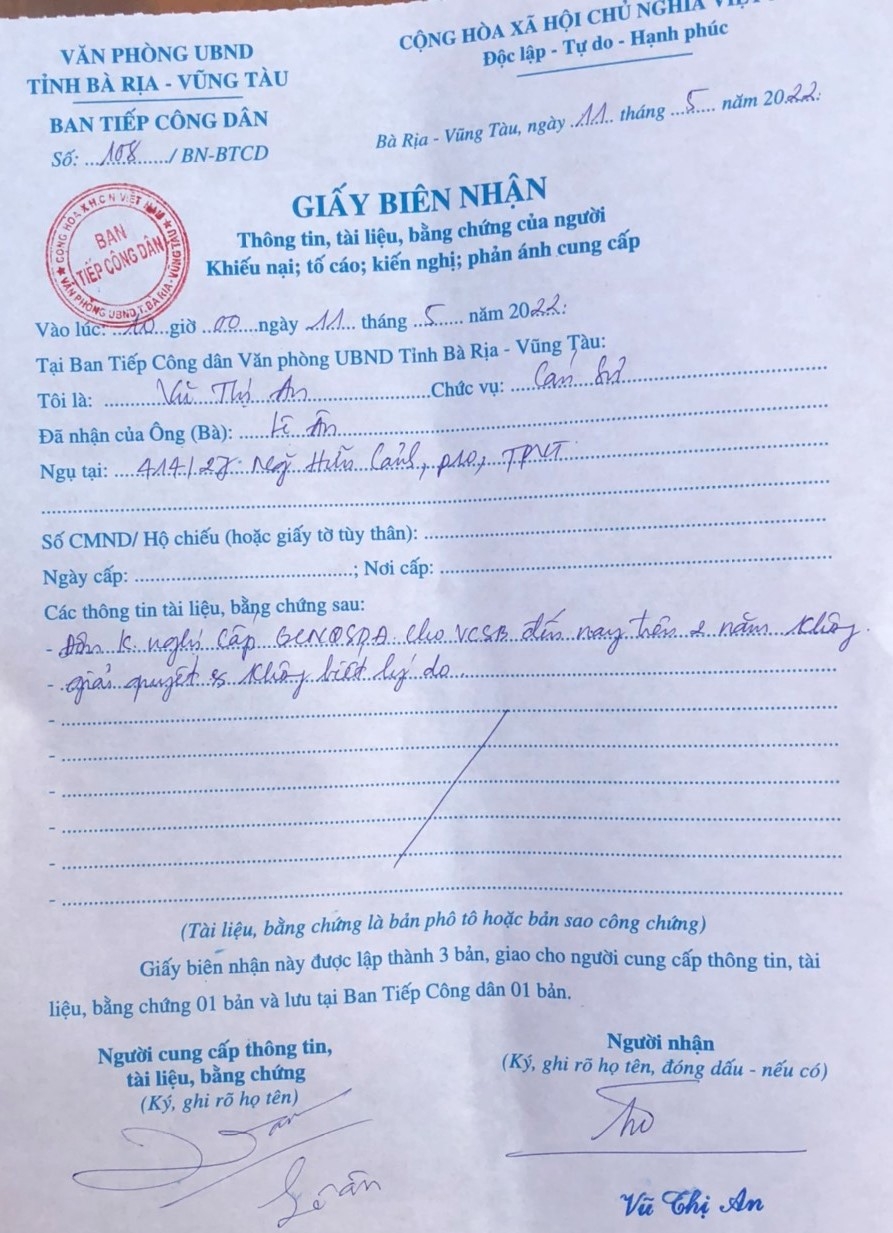 VĂN PHÒNG UBND
TỈNH BÀ RỊA - VŨNG TÀU
BAN TIẾP CÔNG DÂN
Số: 108 / BN-BTCD
CỘNG HÒA XÃ HỘI CHỦ NGHĨA
Độc lập - Tự do - Hạnh phúc
Bà Rịa - Vũng Tàu, ngày 11 tháng 5 năm 2022.
CỘNG HÒA X.H.C.N VIỆT NAM
BAN
TIẾP CÔNG DÂN
VĂN PHÒNG UBND T.BÀ RỊA - VŨNG TÀU
GIẤY BIÊN NHẬN
Thông tin, tài liệu, bằng chứng của người
Khiếu nại; tố cáo; kiến nghị; phản ánh cung cấp
Vào lúc: 10 giờ 00 ngày 11 tháng 5 năm 2022.
Tại Ban Tiếp Công dân Văn phòng UBND Tỉnh Bà Rịa - Vũng Tàu:
Tôi là: Vũ Thị An Chức vụ: Cán sự
Đã nhận của Ông (Bà): Lê Ân
Ngụ tại: 414/27 Ng Hữu Cảnh, p10, TPVT
Số CMND/ Hộ chiếu (hoặc giấy tờ tùy thân):
Ngày cấp: ; Nơi cấp:
Các thông tin tài liệu, bằng chứng sau:
- Đơn k. nghị cấp GCNQSDĐ cho VCSB đến nay trên 2 năm không
- giải quyết không biết lý do
-
-
-
-
-
-
(Tài liệu, bằng chứng là bản phô tô hoặc bản sao công chứng)
Giấy biên nhận này được lập thành 3 bản, giao cho người cung cấp thông tin, tài
liệu, bằng chứng 01 bản và lưu tại Ban Tiếp Công dân 01 bản.
Người cung cấp thông tin,
tài liệu, bằng chứng
(Ký, ghi rõ họ tên)
Lê Ân
Người nhận
(Ký, ghi rõ họ tên, đóng dấu - nếu có)
Vũ Thị An